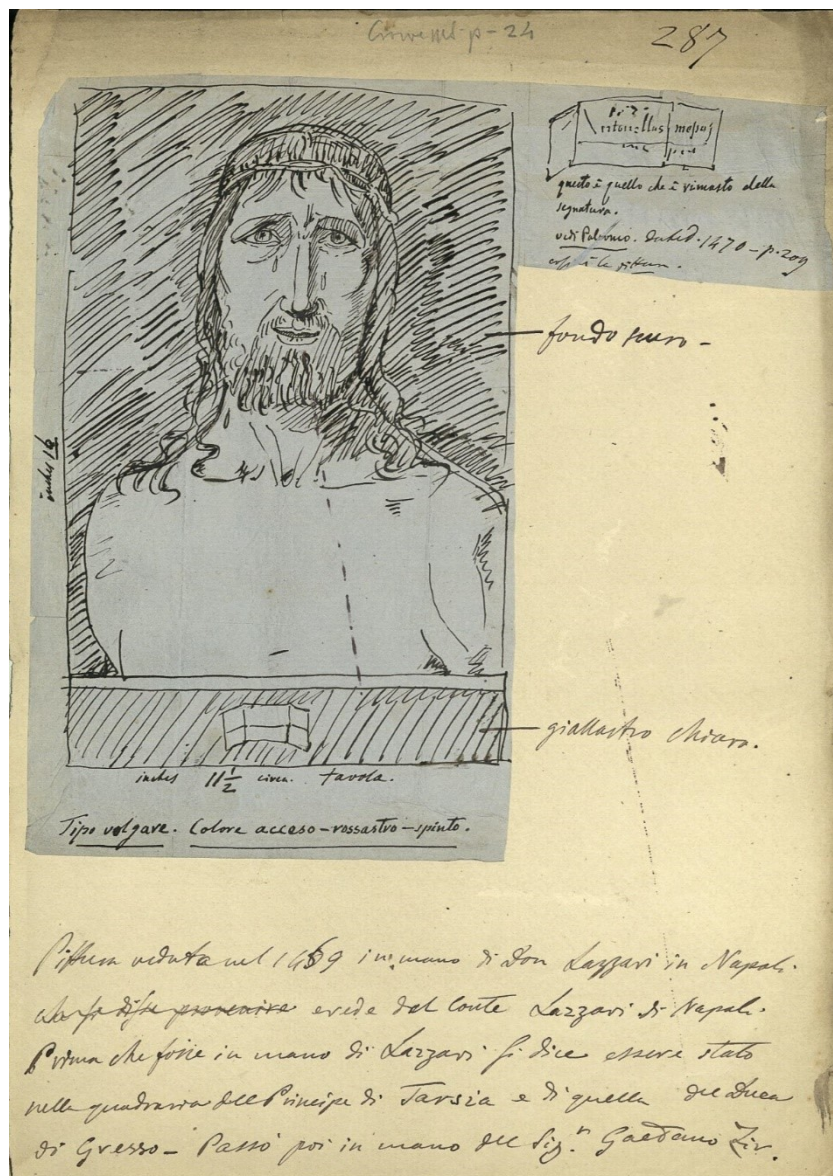 p-24
287
ntonellus mesaj
questo è quello che è rimasto della
segnatura.
vedi Palermo. dated. 1470 - p. 209
così è la pittura.
fondo scuro -
inches 16
giallastro chiaro.
inches 11 1/2 circa. tavola.
Tipo volgare. Colore acceso - rossastro - spinto.
Pittura veduta nel 1859 in mano di Don Lazzari in Napoli.
che si disse provenire erede del Conte Lazzari di Napoli.
Prima che fosse in mano di Lazzari si dice essere stato
nella quadraria del Principe di Tarsia e di quella del Duca
di Gresso - Passò poi in mano del Sig.r Gaetano Zir.